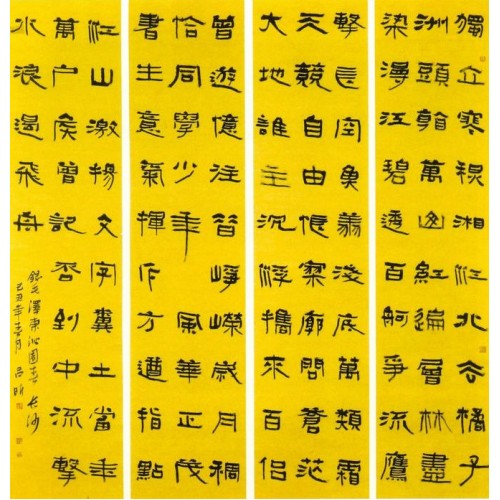 獨立寒穐湘江北去橘子
洲頭看萬山紅遍層林盡
染漫江碧透百舸爭流鷹
擊長空魚翔淺底萬類霜
天競自由悵寥廓問蒼茫
大地誰主沉浮攜來百侶
曾遊憶往昔崢嶸歲月稠
恰同學少年風華正茂
書生意氣揮斥方遒指點
江山激揚文字糞土當年
萬户矦曾記否到中流擊
水浪遏飛舟
錄毛澤東沁園春長沙
己丑年春月